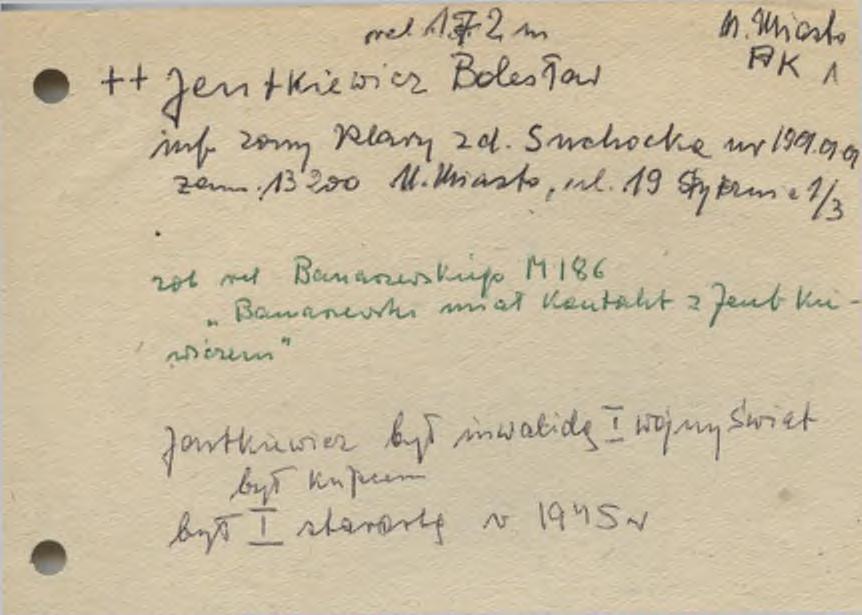 rel 172 m
N. Miasto
AK 1
++ Jentkiewicz Bolesław
inf. żony Klary zd. Suchocka ur 1901.09.09
zam. 13200 N. Miasto, ul. 19 Stycznia 1/3
zob rel Banaszewskiego M 186
"Banaszewski miał kontakt z Jentkie-
wiczem"
Jentkiewicz był inwalidą I wojny świat
był kupcem
był I starostą w 1945 r